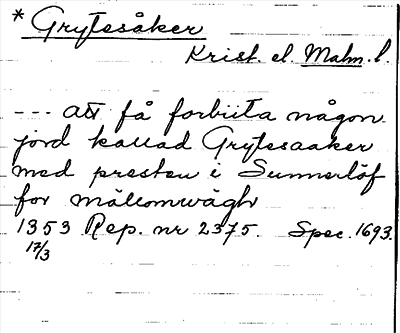 * Grytesåker
Krist. el. Malm. l.
--- att få forbiita någon
jord kallad Grytesaaker
med presten i Sunnerlöf
for mällomwägh
1353 Rep. nr 2375. Spec. 1693.
17/3